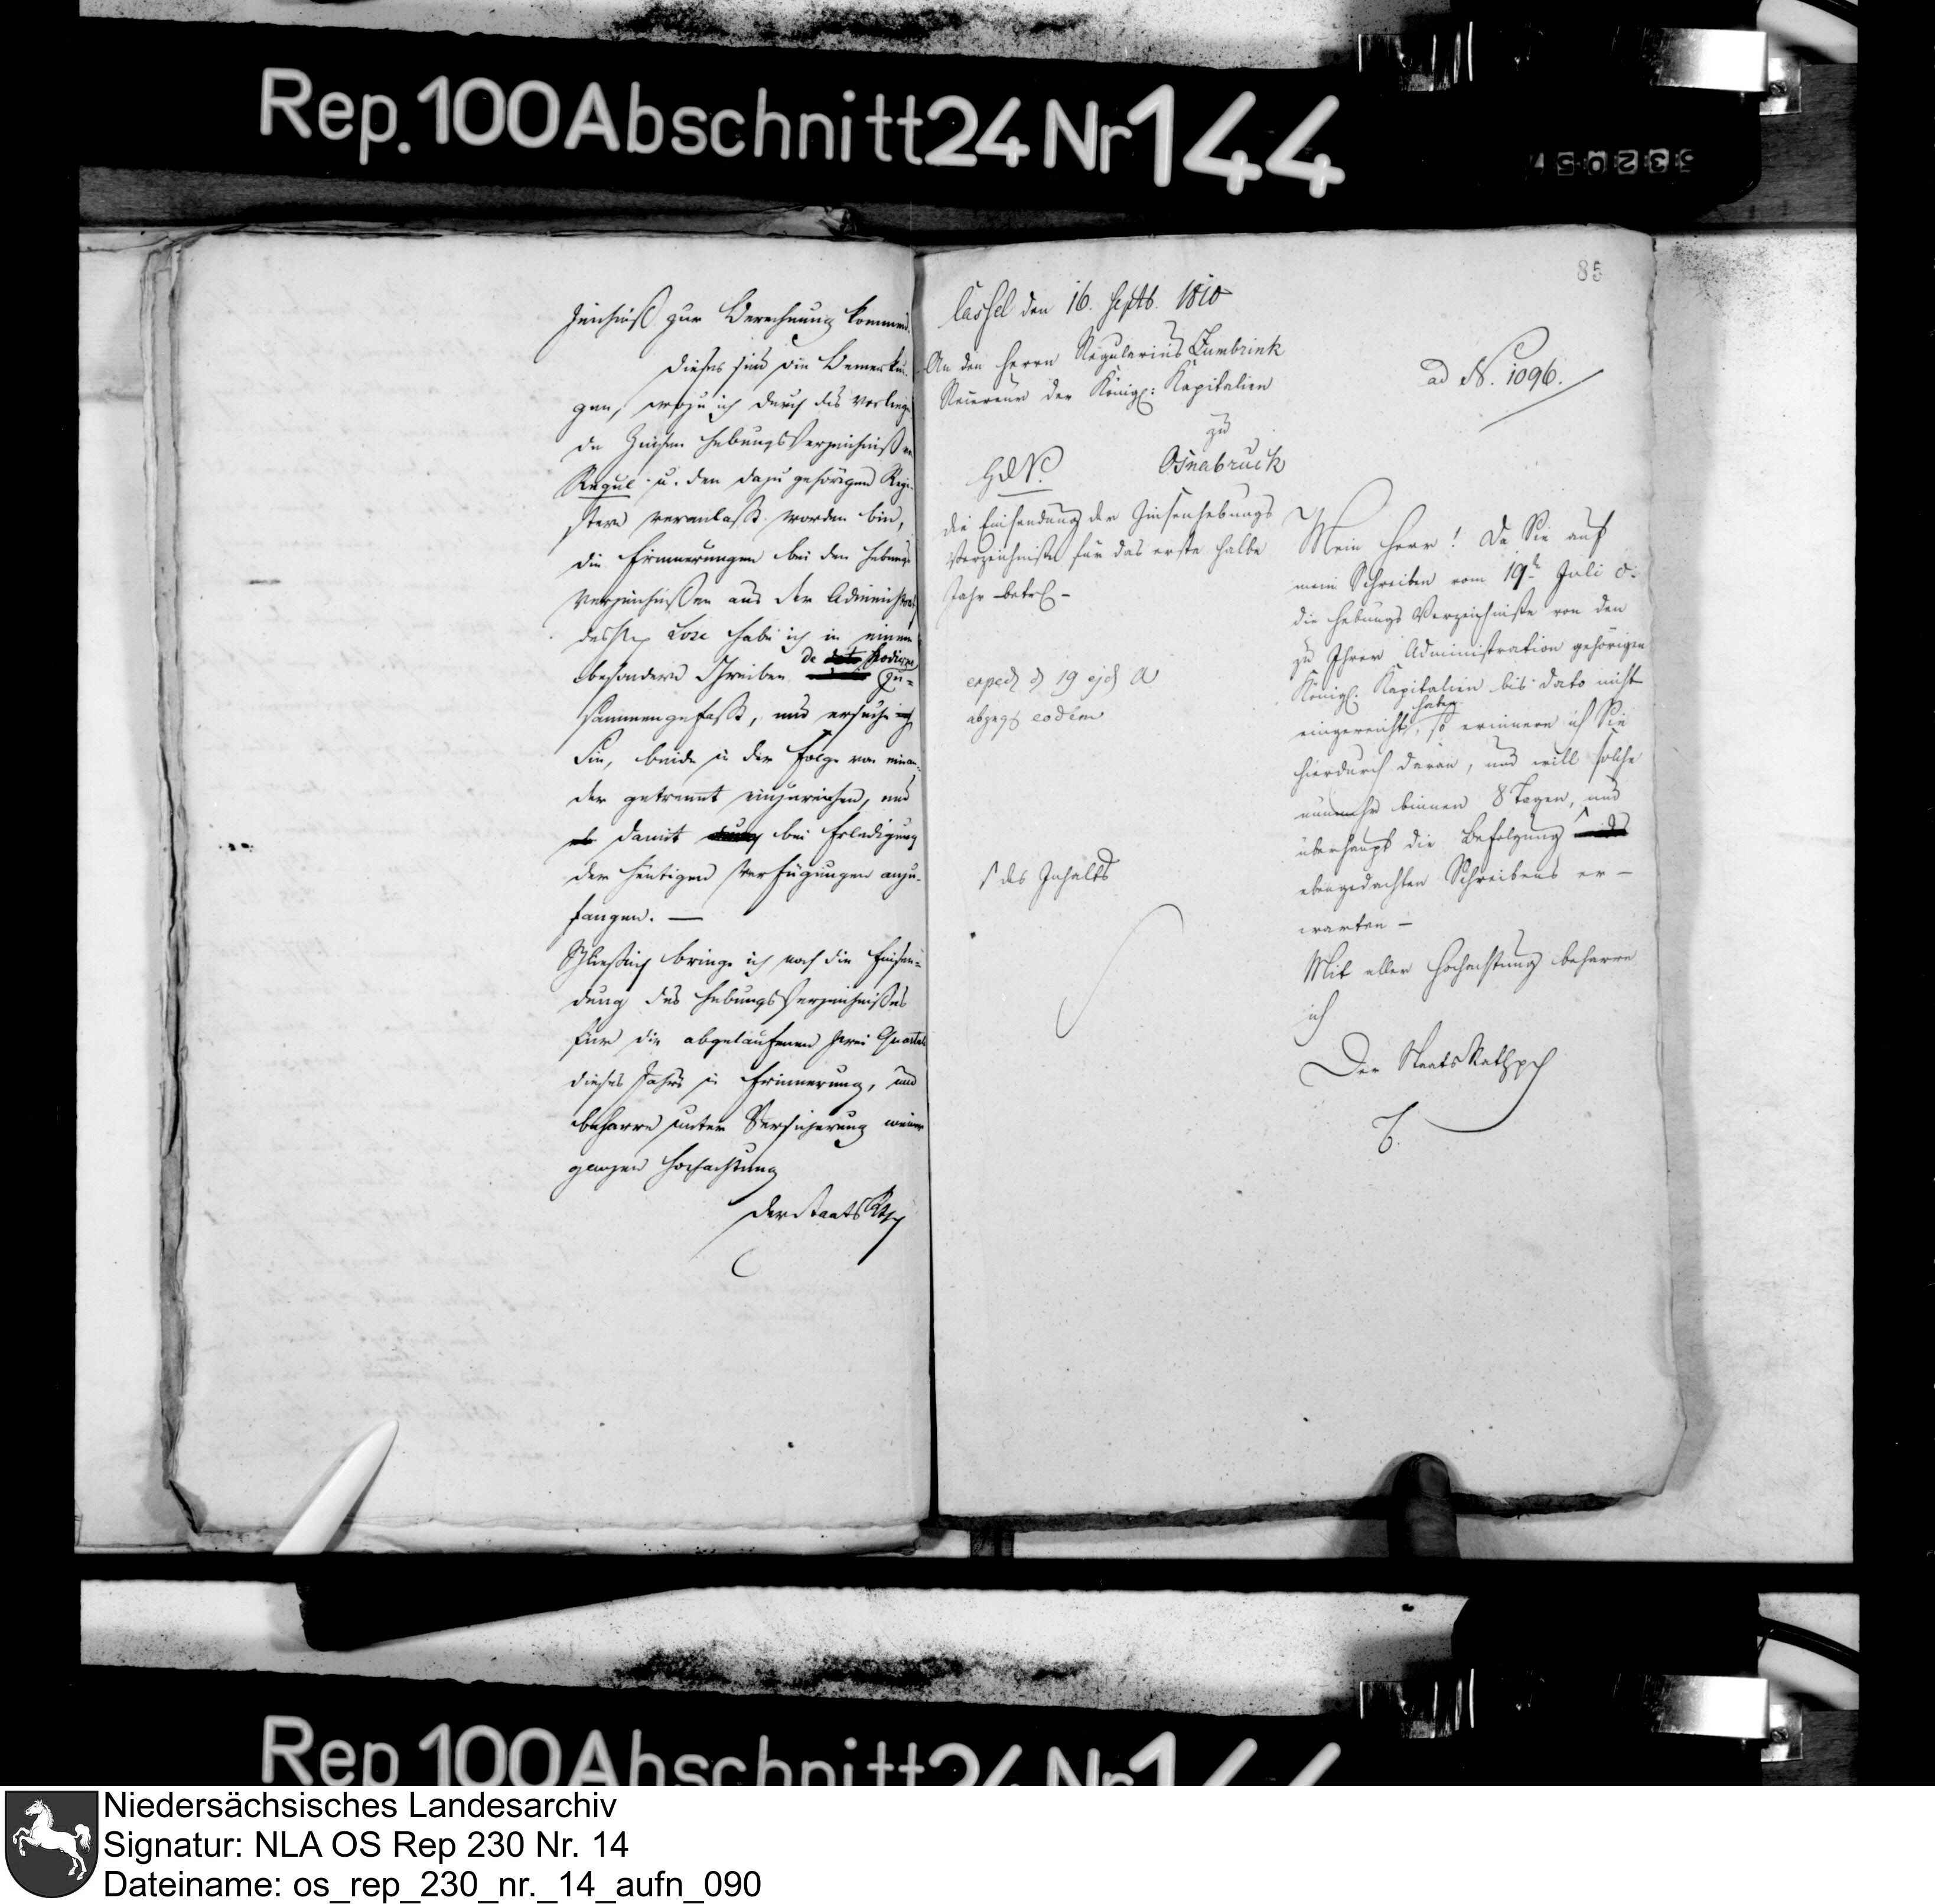 Rep. 100 Abschnitt 24 Nr 144
zeichniß zur Berechnung kommen.
Dieses sind die Bemerkun-
gen, wozu ich durch das vorliegen
de Zinsen Hebungs Verzeichniß
Regul u. den dazu gehörigen Regi-
stern veranlaßt worden bin,
die Erinnerungen bei den Hebungs
Verzeichnißen aus der Administrat
des Lose habe ich in einem
besondern Schreiben de hodierno zu-
sammengefaßt, und ersuche
Sie, beide in der Folge von einan-
der getrennt einzureichen, und
damit bei Erledigung
der heutigen Verfügungen anzu-
fangen. —
Schließlich bringe ich noch die Einsen-
dung des Hebungs Verzeichnißes
für die abgelaufenen zwei Quartale
dieses Jahrs in Erinnerung, und
beharre unter Versicherung meiner
ganzen Hochachtung
Der Staats Rth
85
Cassel den 16. Septb. 1810
An den Herrn Regularius Zumbrink
Receveur der Königl: Kapitalien
zu
Osnabruck
ad N. 1096.
die Einsendung der Zinsenhebungs
Verzeichniße für das erste halbe
Jahr betrf -
exped d 19 ejd
abgeg eodem
des Inhalts
Mein Herr! Da Sie auf
mein Schreiben vom 19t Juli d.
die Hebungs Verzeichniße von den
zu Ihrer Administration gehörigen
Königl. Kapitalien bis dato nicht
eingereicht haben, so erinnere ich Sie
hierdurch daran, und will solche
nunmehr binnen 8 Tagen, und
überhaupt die Befolgung
obengedachten Schreibens er-
warten -
Mit aller Hochachtung beharre
ich
Der Staats Rath
Rep 100 Abschnitt 24 Nr 144
Niedersächsisches Landesarchiv
Signatur: NLA OS Rep 230 Nr. 14
Dateiname: os_rep_230_nr._14_aufn_090